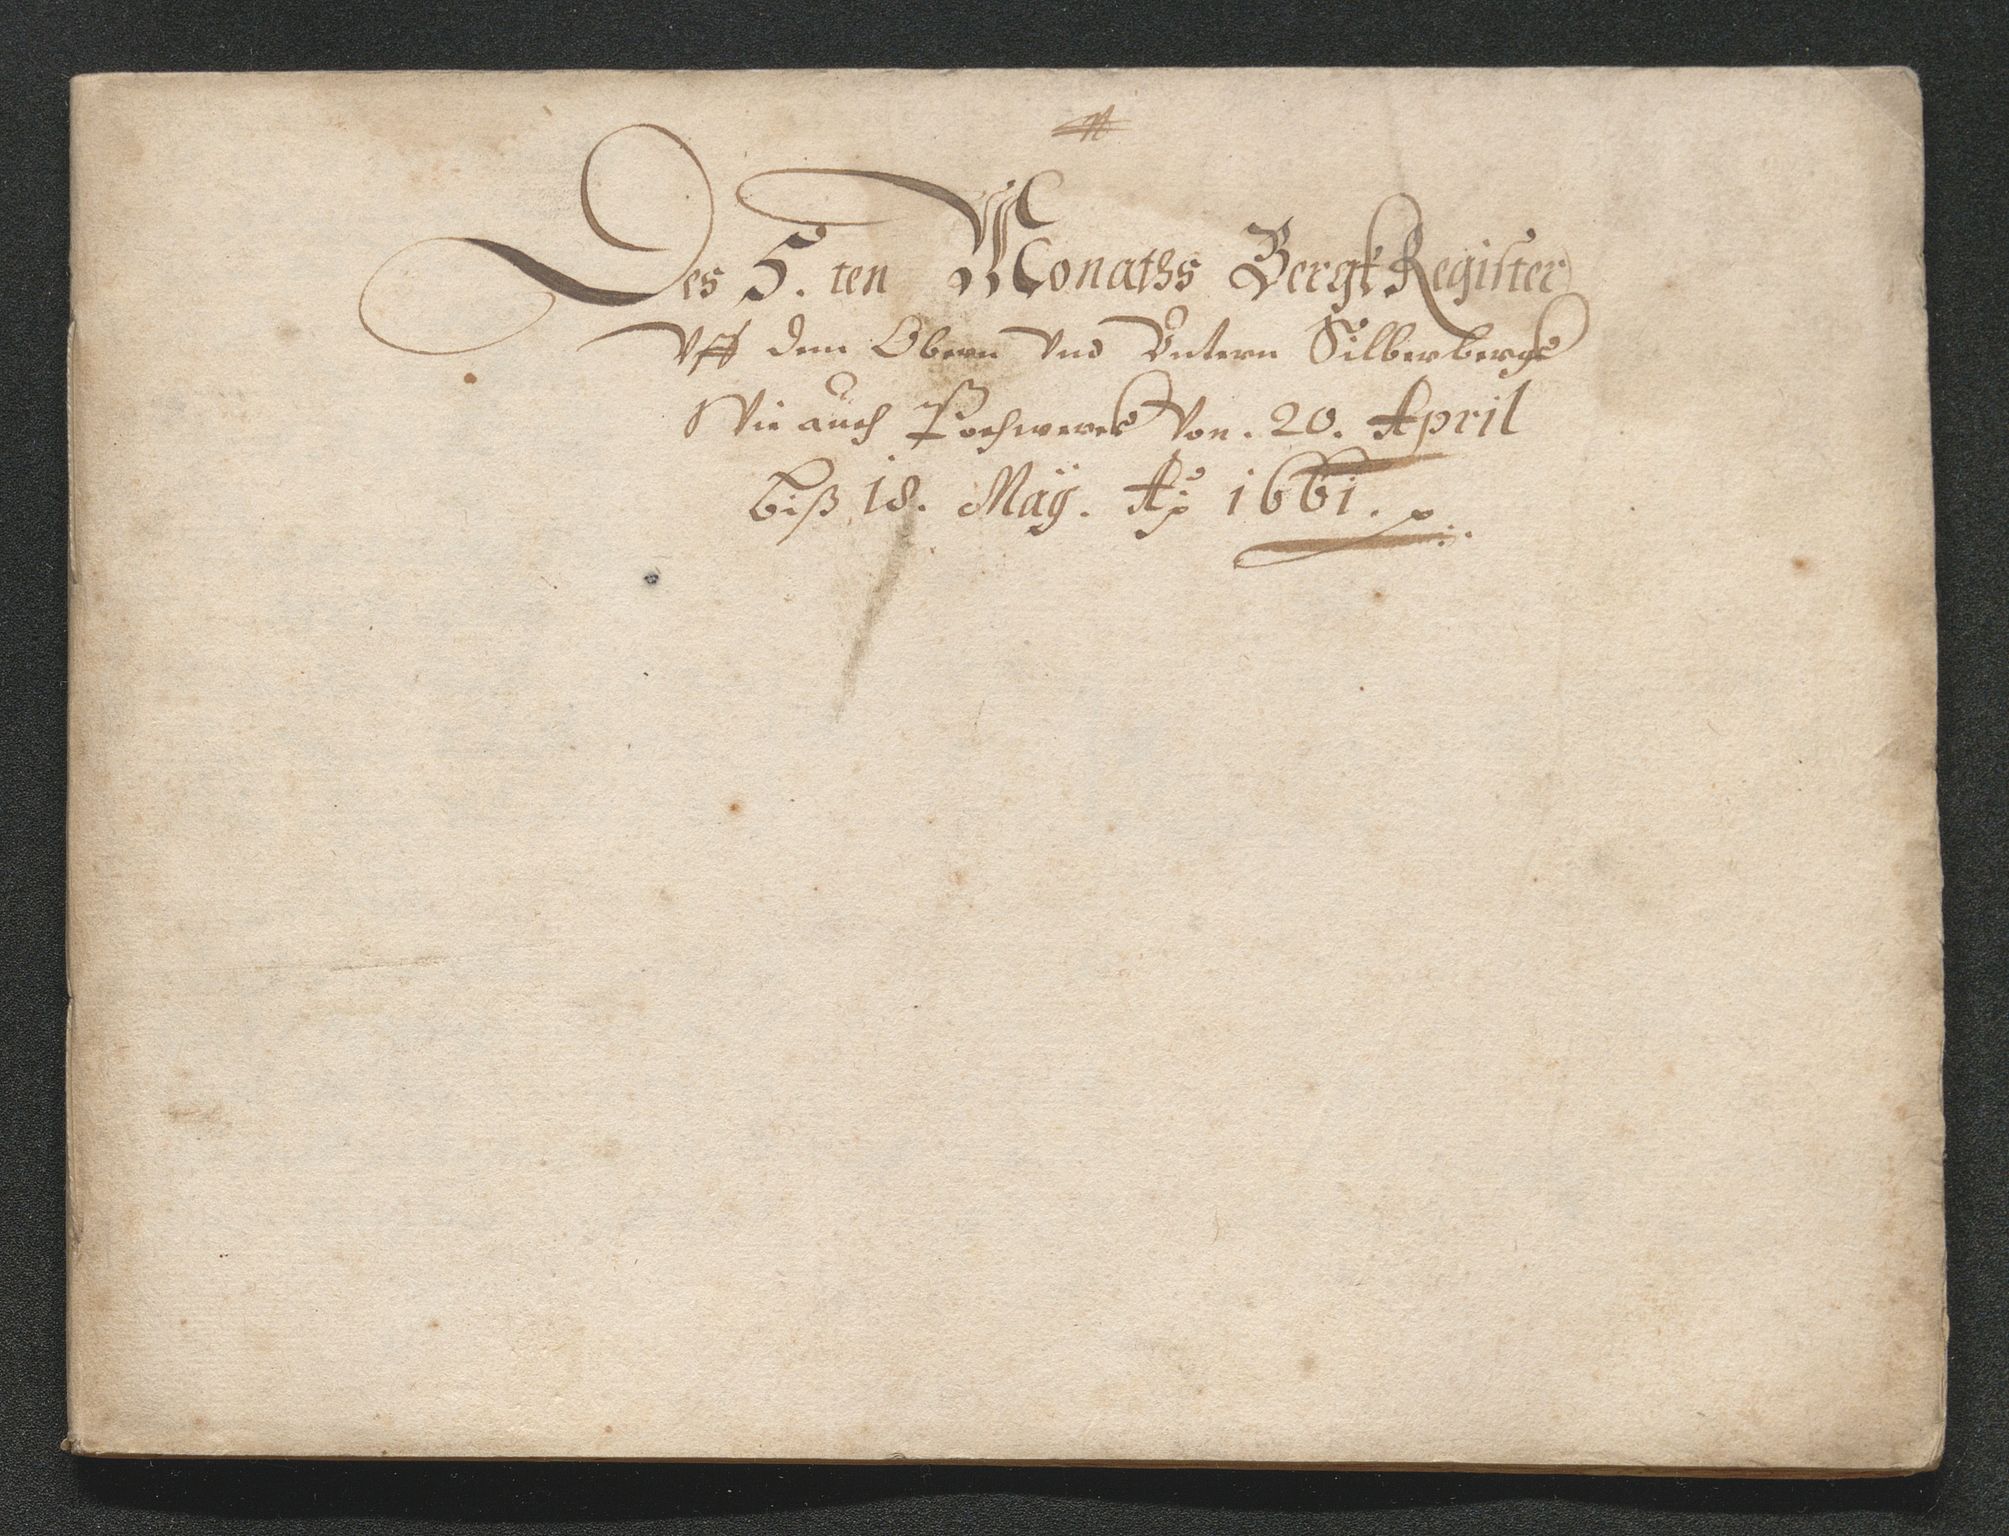 Des 5. ten Monaths Bergk Register
Vff dem Obern vnd Vntern Silberbergk
Wie auch Pochwerck von. 20. April
biß 18. Maÿ. Ao 1661.